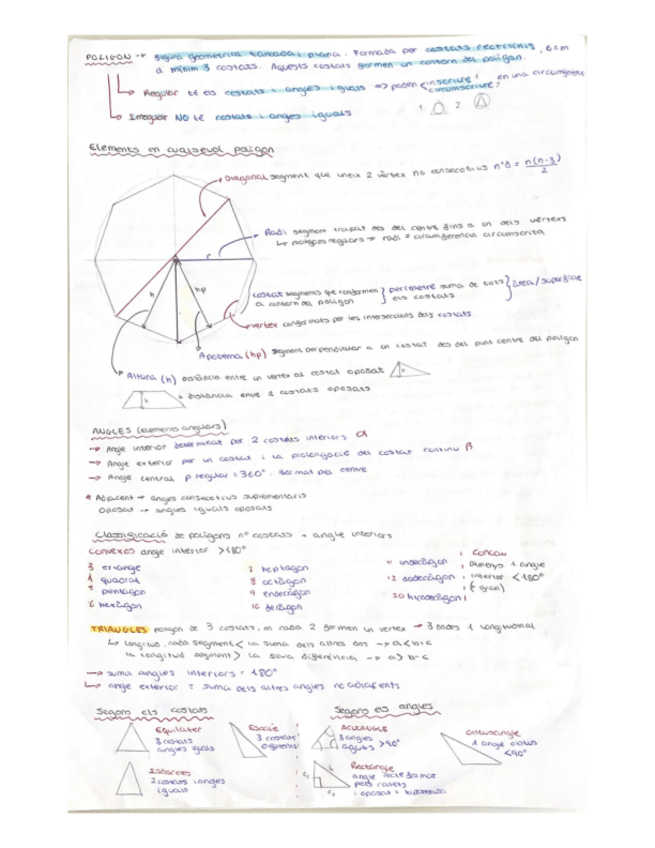 POLIGON → figura geometrica tancada i plana. Formada per costats rectilinis, com
a mínim 3 costats. Aquests costats formen un contorn del poligon.
Regular té els costats i angles iguals => poden inscriure¹ en una circumferència
circumscriure²
1 2
Irregular NO té costats i angles iguals
Elements en qualsevol poligon
Diagonal segment que uneix 2 vèrtex no consecutius nºd = n(n-3)/2
Radi segment traçat des del centre fins a un dels vèrtexs
↳ poligons regulars → radi = circumferencia circumscrita
r
h
hp
costat segments que conformen } perímetre suma de tots } àrea/superficie
el contorn del poligon els costats
vertex conformats per les interseccions dels costats
Apotema (hp) segment perpendicular a un costat des del punt centre del poligon
Altura (h) distància entre un vertex al costat oposat
distància entre 2 costats oposats
ANGLES (elements angulars)
→ Angle interior determinat per 2 costats interiors α
→ Angle exterior per un costat i la prolongació del costat continu β
→ Angle central p. regular = 360º. format pel centre
* Adjacent → angles consecutius suplementaris
Oposat → angles iguals oposats
Classificació de poligons nº costats + angle interiors
CONVEXOS angle interior >180º
3 triangle
4 quadrat
5 pentagon
6 hexàgon
7 heptagon
8 octàgon
9 enneàgon
10 decàgon
11 undecàgon
12 dodecàgon
20
CONCAU
almenys 1 angle
interior <180º
(+ gran)
TRIANGLES poligon de 3 costats, on cada 2 formen un vertex → 3 bases 1 longitudinal
↳ longitud cada segment < la suma dels altres dos → a<b+c
la longitud segment > la seva diferència → a>b-c
→ suma angles interiors = 180º
↳ angle exterior = suma dels altres angles no adjacents
Segons els costats
EQUILATER
3 costats
angles iguals
Escalè
3 costats
diferents
ISÒSCELES
2 costats i angles
iguals
Segons els angles
ACUTANGLE
3 angles
aguts >90º
Obtusangle
1 angle obtus
<90º
Rectangle
angle recte format
pels catets
i oposat = hipotenusa
h
c₂
c₁